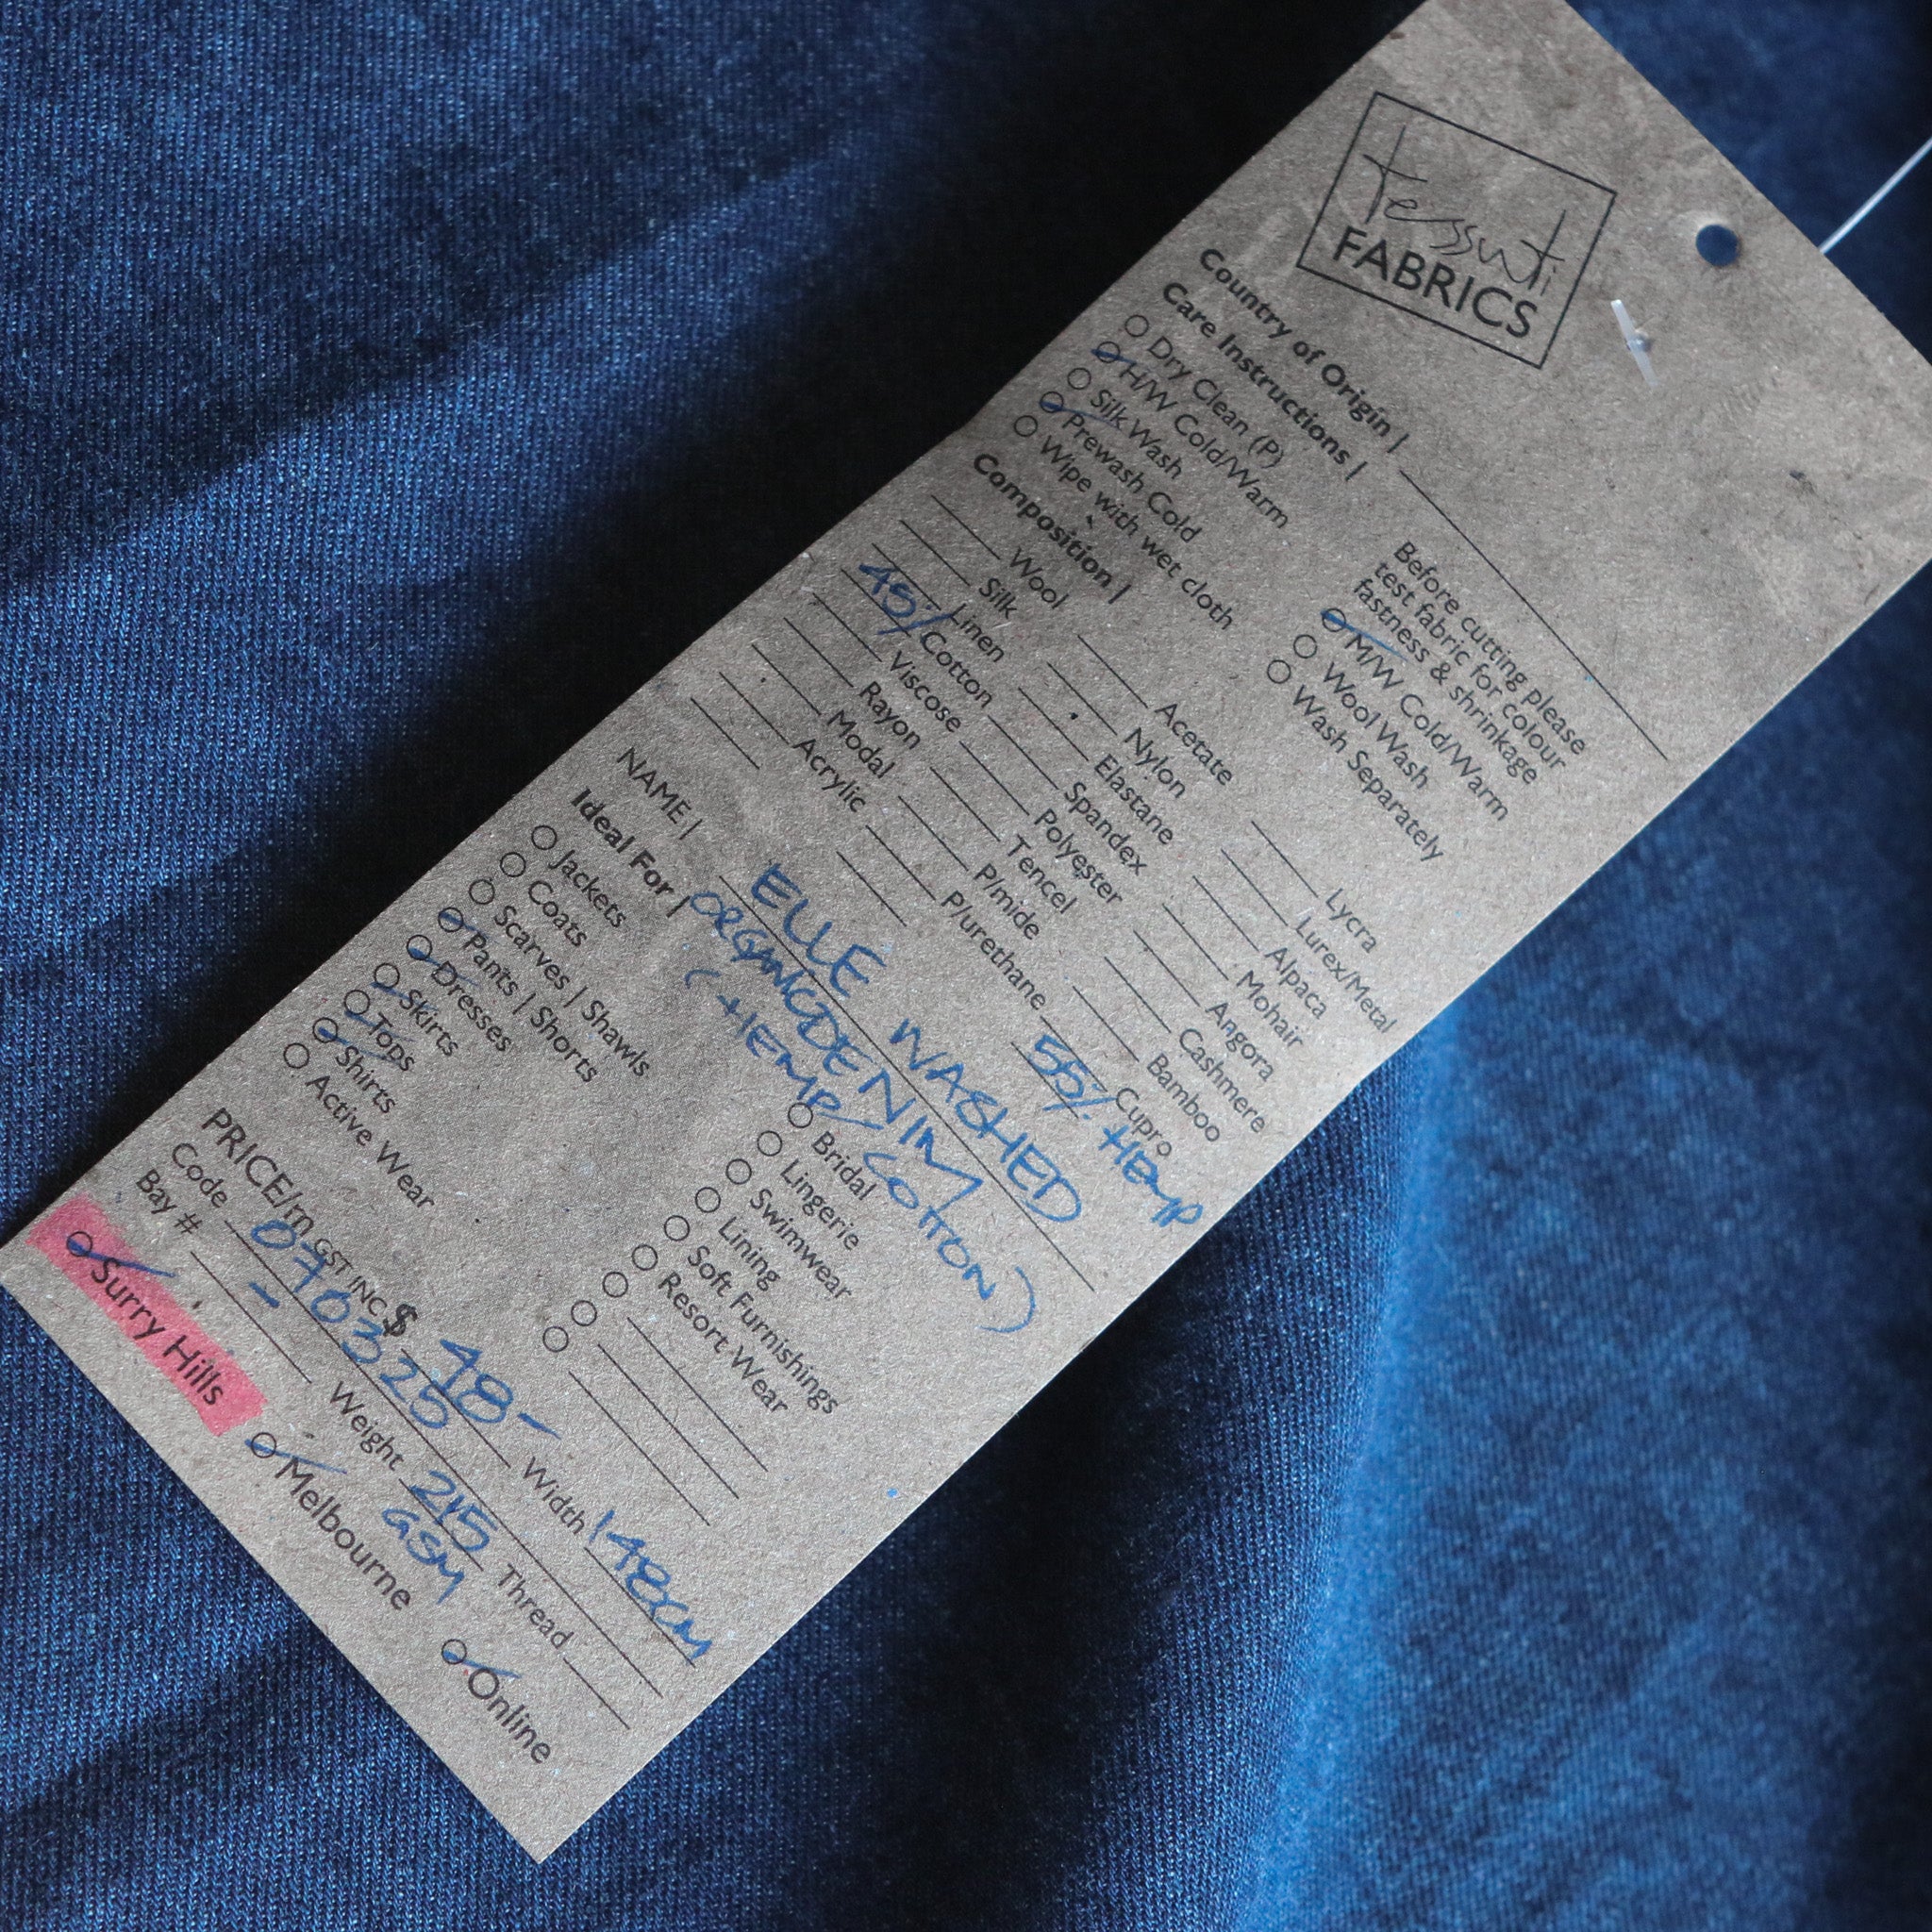 tessuti
FABRICS
Country of Origin |
Care Instructions |
Before cutting please
test fabric for colour
fastness & shrinkage
Dry Clean (P)
H/W Cold/Warm
Silk Wash
Prewash Cold
Wipe with wet cloth
M/W Cold/Warm
Wool Wash
Wash Separately
Composition |
Wool
Silk
Linen
45% Cotton
Viscose
Rayon
Modal
Acrylic
Acetate
Nylon
Elastane
Spandex
Polyester
Tencel
P/mide
P/urethane
Lycra
Lurex/Metal
Alpaca
Mohair
Angora
Cashmere
Bamboo
Cupro
55% HEMP
NAME | ELLE WASHED
ORGANIC DENIM
(HEMP/COTTON)
Ideal For |
Jackets
Coats
Scarves | Shawls
Pants | Shorts
Dresses
Skirts
Tops
Shirts
Active Wear
Bridal
Lingerie
Swimwear
Lining
Soft Furnishings
Resort Wear
PRICE/m GST INC $ 48- Width 148cm
Code 0770325
Bay # - Weight 215 GSM Thread
Surry Hills Melbourne Online